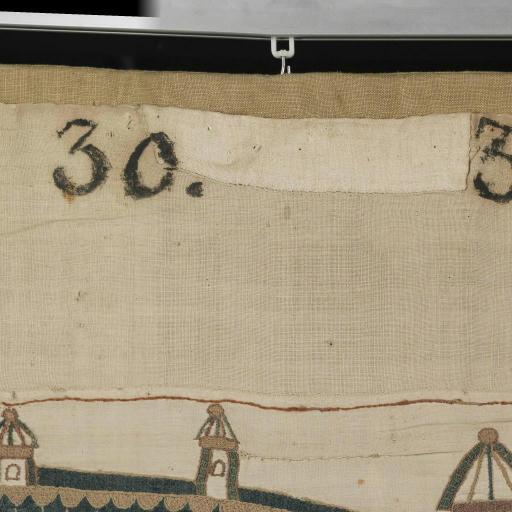 30. 3